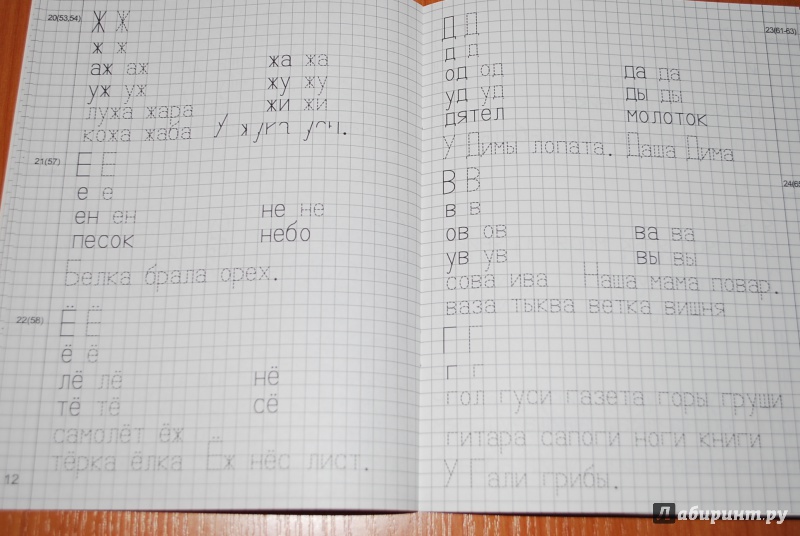 20(53,54) Ж Ж
ж ж
аж аж жа жа
уж уж жу жу
лужа жара жи жи
кожа жаба У
21(57) Е Е
е е
ен ен не не
песок небо
Белка брала орех.
22(58) Ё Ё
ё ё
лё лё нё
тё тё сё
самолёт ёж
тёрка ёлка Ёж нёс лист.
12
Д Д 23(61-63)
д д
од од да да
уд уд ды ды
дятел молоток
У Димы лопата. Даша Дима
В В
в в
ов ов ва ва
ув ув вы вы
сова ива Наша мама повар.
ваза тыква ветка вишня
Г Г
г г
гол гуси газета горы груши
гитара сапоги ноги книги
У Гали грибы.
Лабиринт.ру